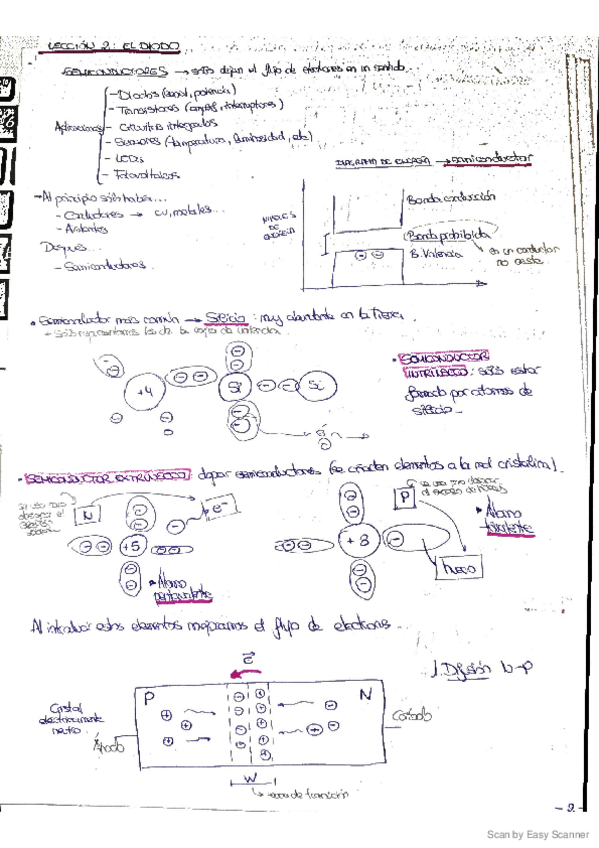 LECCIÓN 2: EL DIODO
SEMICONDUCTORES → sólo dejan el flujo de electrones en un sentido...
- Diodos (señal, potencia)
- Transistores (amplif, interruptores)
Aplicaciones - Circuitos integrados
- Sensores (temperatura, luminosidad, etc)
- LEDs
- Fotovoltaicos
DIAGRAMA DE ENERGÍA → semiconductor
- Al principio sólo había...
- Conductores → cu, metales...
- Aislantes
Después...
- Semiconductores...
NIVELES DE ENERGÍA
Banda conducción
Banda prohibida
B. Valencia
en un conductor no existe
• Semiconductor más común → Silicio: muy abundante en la Tierra.
- Sólo representamos los de la capa de valencia
+4
Si
Si
• SEMICONDUCTOR
INTRÍNSECO: sólo estar
formado por átomos de
silicio...
• SEMICONDUCTOR EXTRÍNSECO: dopar semiconductores (se añaden elementos a la red cristalina).
N
e-
+5
• Átomo
pentavalente
P
+3
hueco
• Átomo
trivalente
Al introducir estos elementos mejoramos el flujo de electrones...
e
1. Difusión N-P
P
N
Cristal
eléctricamente
neutro
Ánodo
Cátodo
W
→ zona de transición
- 2 -
Scan by Easy Scanner